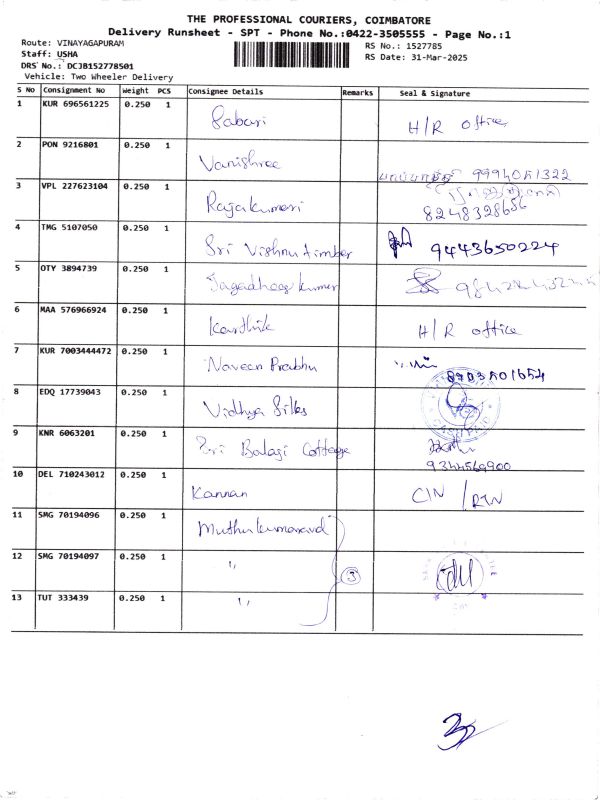 THE PROFESSIONAL COURIERS, COIMBATORE
Delivery Runsheet - SPT - Phone No.:0422-3505555 - Page No.:1
Route: VINAYAGAPURAM
RS No.: 1527785
Staff: USHA
RS Date: 31-Mar-2025
DRS No.: DCJB152778501
Vehicle: Two Wheeler Delivery
S No Consignment No Weight PCS Consignee Details Remarks Seal & Signature
1 KUR 696561225 0.250 1 Sabari H/R office
2 PON 9216801 0.250 1 Vanishree
3 VPL 227623104 0.250 1 Rajakumari 8248328656
4 TMG 5107050 0.250 1 Sri Vishnu timber 9443650224
5 OTY 3894739 0.250 1 Jagadheeskumar
6 MAA 576966924 0.250 1 Karthik H/R office
7 KUR 7003444472 0.250 1 Naveen Prabhu
8 EDQ 17739043 0.250 1 Vidhya Silks
9 KNR 6063201 0.250 1 Sri Balaji Cottage 9344569900
10 DEL 710243012 0.250 1 Kannan CIN / RTN
11 SMG 70194096 0.250 1
12 SMG 70194097 0.250 1 " 3
13 TUT 333439 0.250 1 "
32